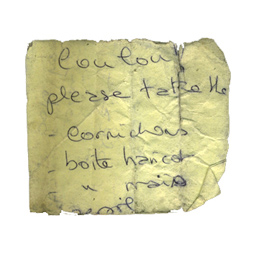 Loulou
please take the
- Cornichons
- boite haricot
- " maïs